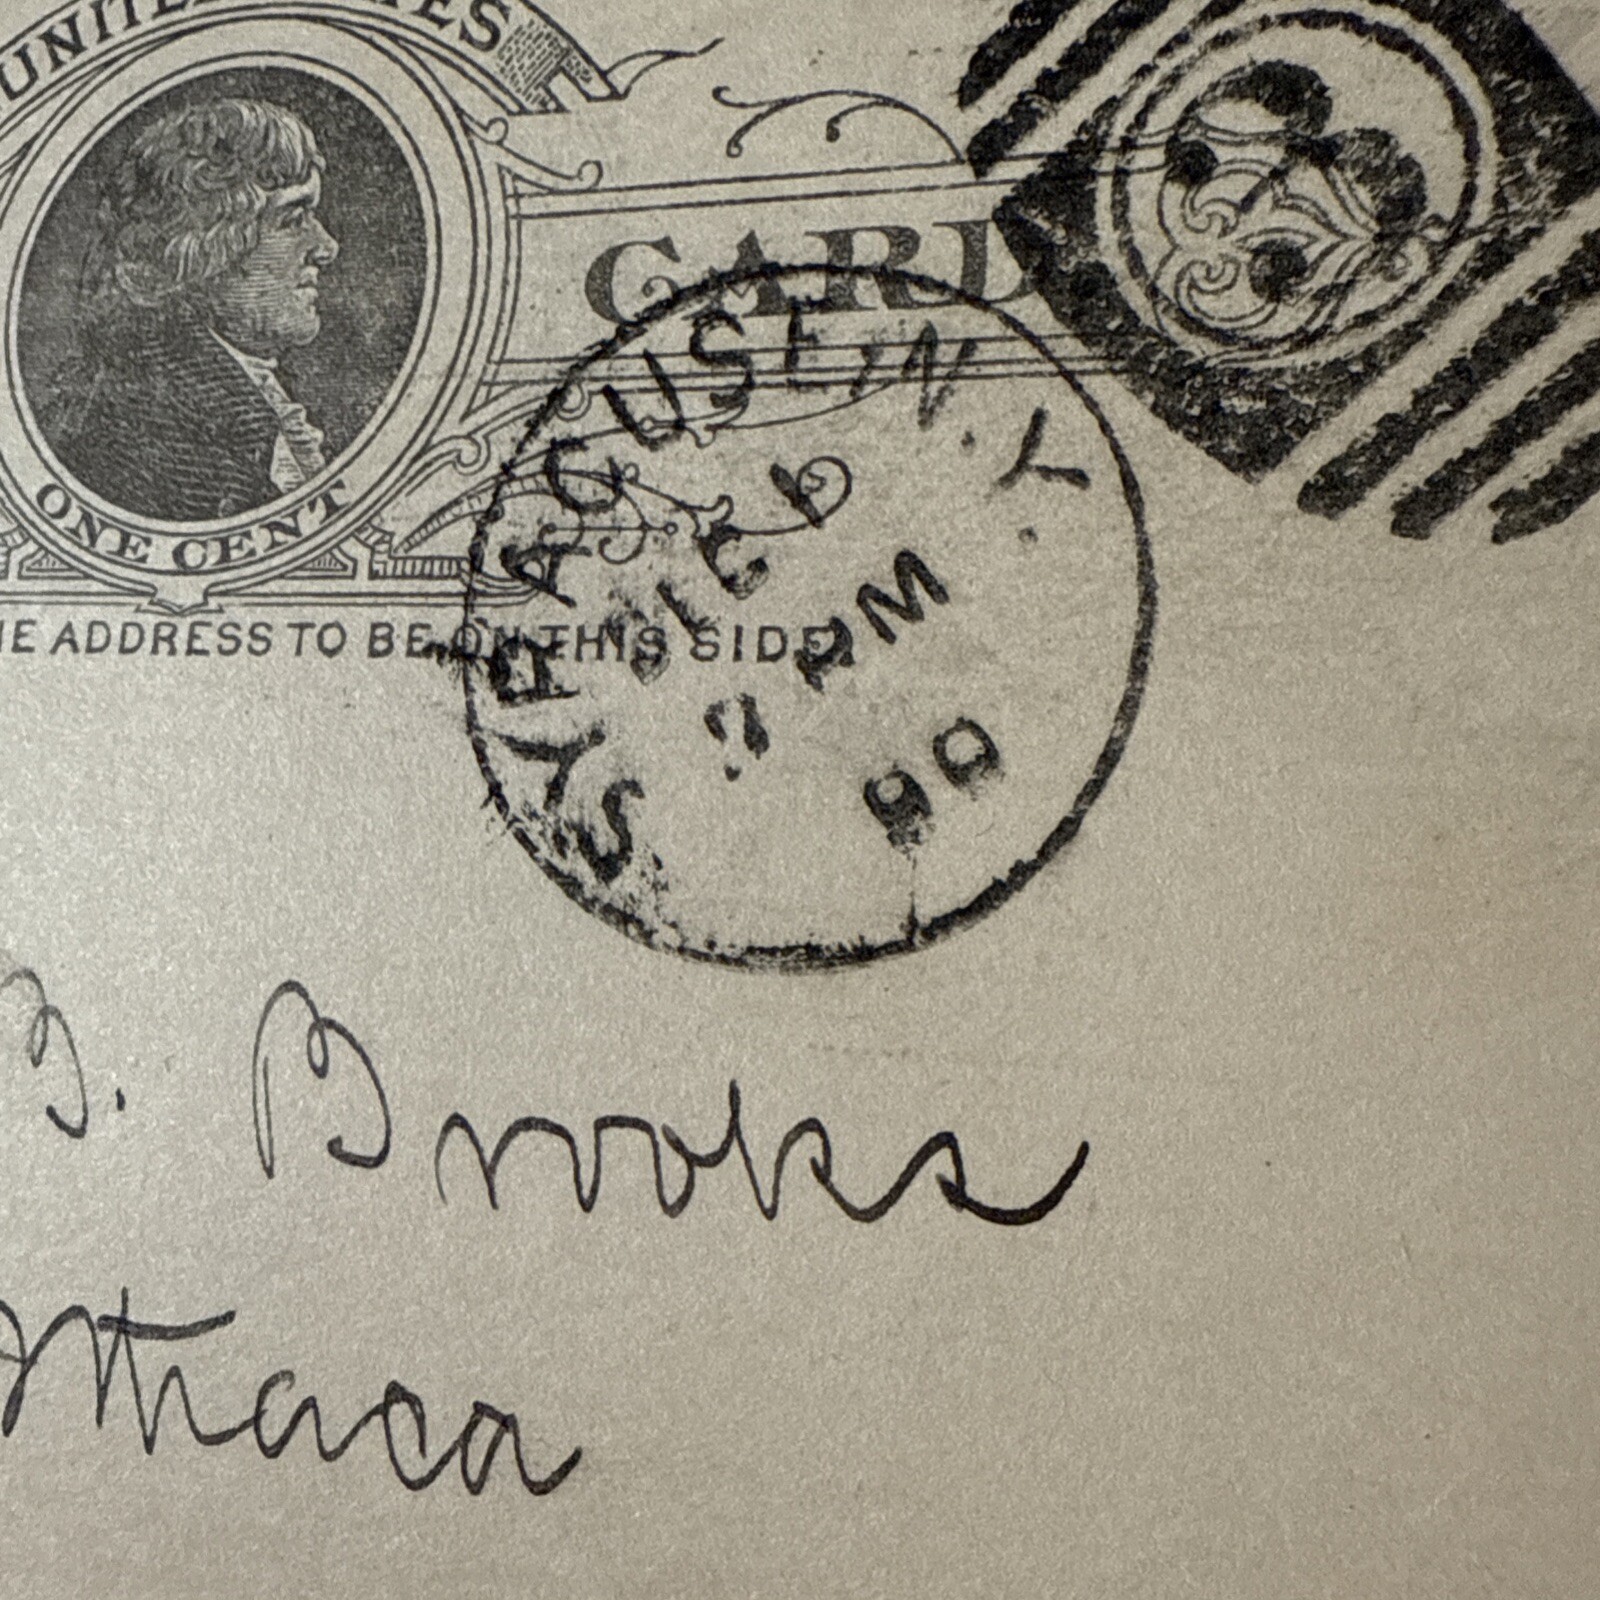 UNITED STATES
CARD
ONE CENT
THE ADDRESS TO BE ON THIS SIDE.
SYRACUSE, N.Y.
PM
90
B. Brooks
Ithaca